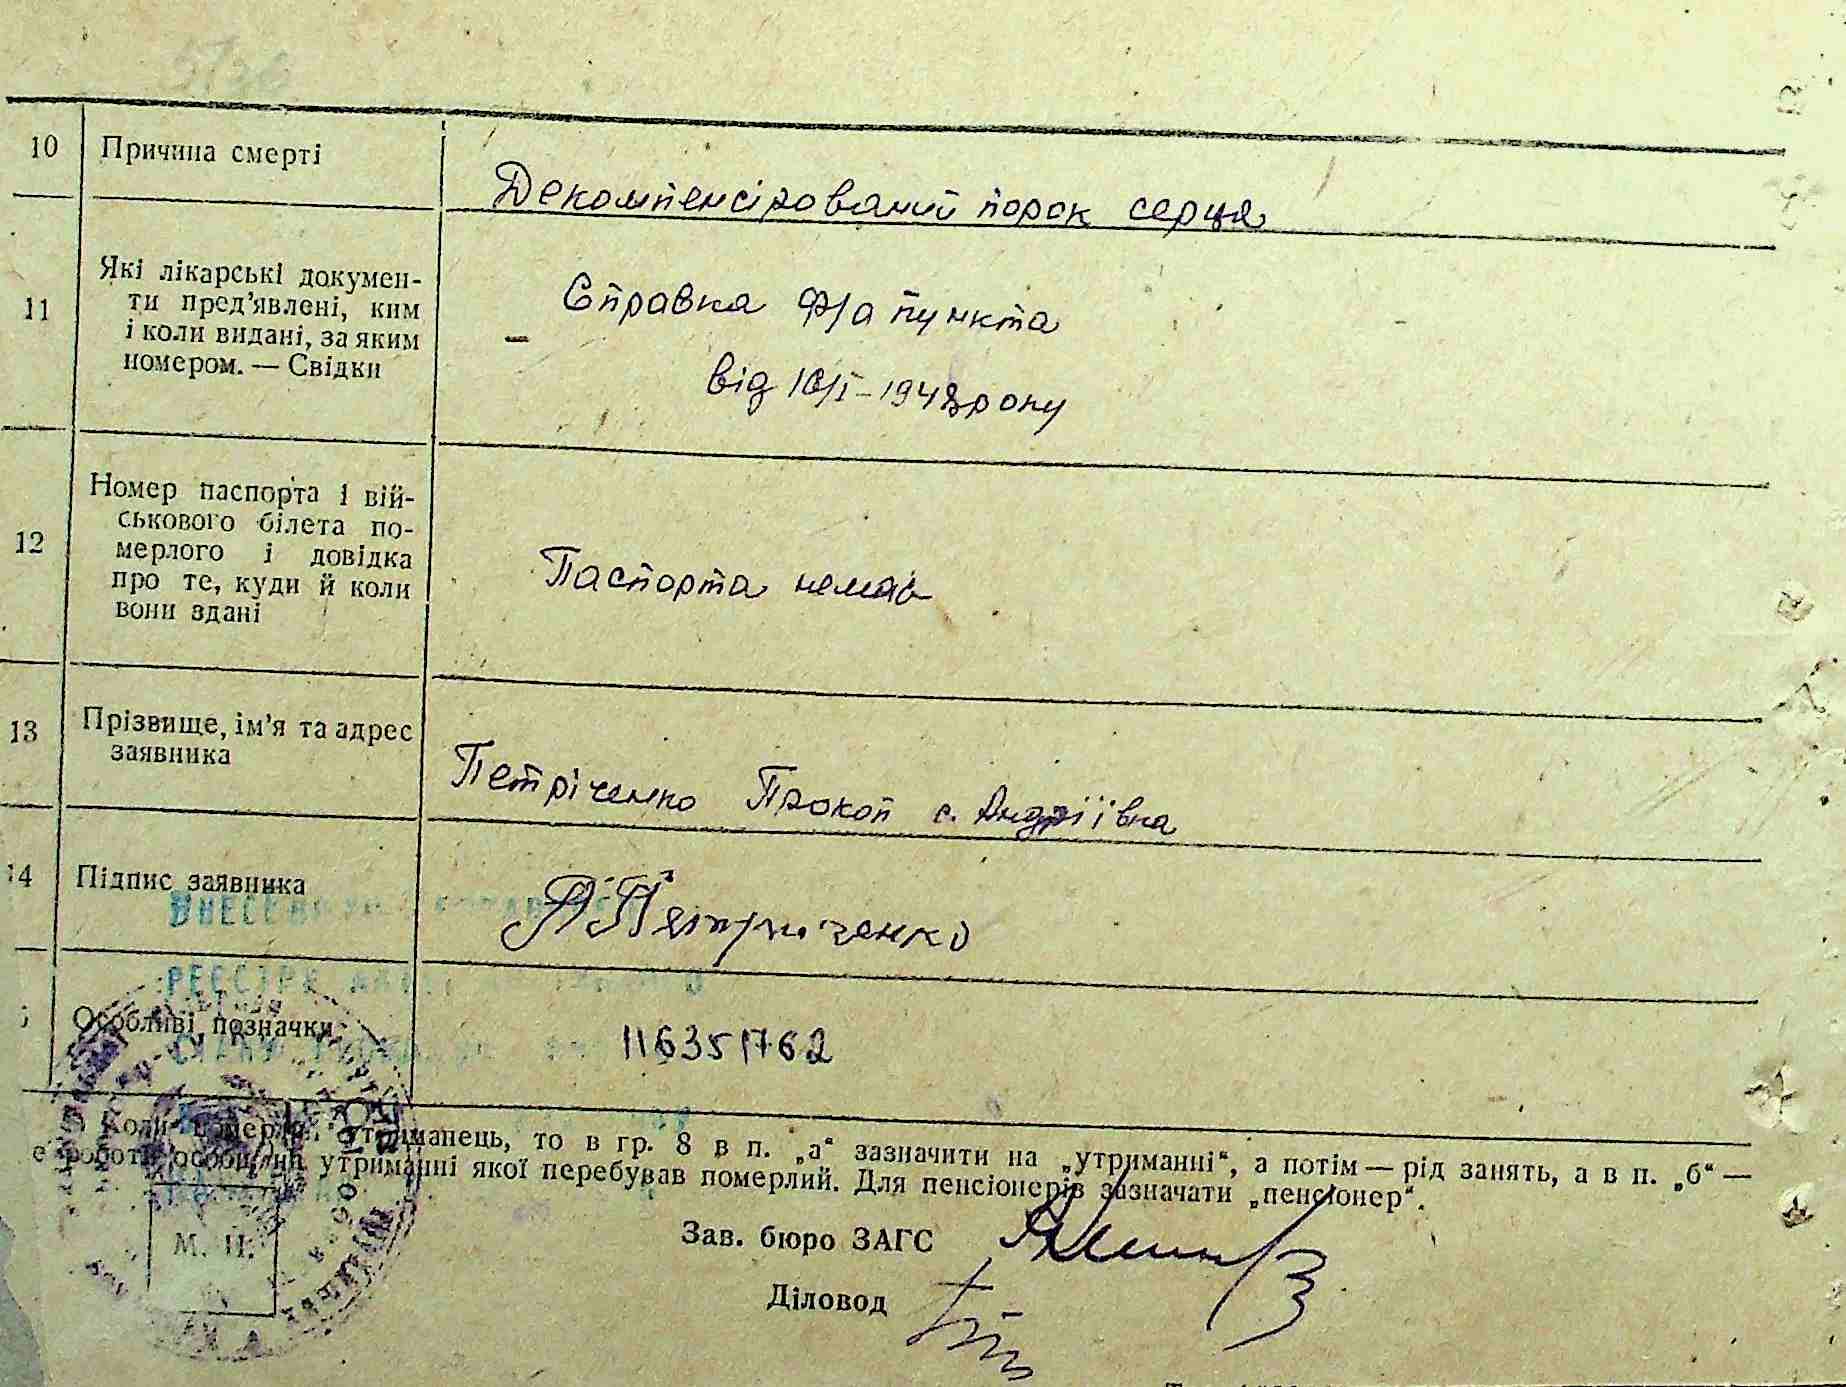 10 Причина смерті
Декомпенсірований порок серця
11 Які лікарські докумен-
ти пред’явлені, ким
і коли видані, за яким
номером. — Свідки
Справка ф/а пункта
від 16/I - 1948 року
12 Номер паспорта і вій-
ськового білета по-
мерлого і довідка
про те, куди й коли
вони здані
Паспорта немає
13 Прізвище, ім’я та адрес
заявника
Петріченко Прокоп с. Андріївка
14 Підпис заявника
П Петриченко
ВНЕСЕНО
РЕЄСТРІ
Особливі позначки
116351762
Коли помер утриманець, то в гр. 8 в п. „а“ зазначити на „утриманні“, а потім — рід занять, а в п. „б“ —
е роботи особи, на утриманні якої перебував померлий. Для пенсіонерів зазначати „пенсіонер“.
Зав. бюро ЗАГС
М. П.
Діловод